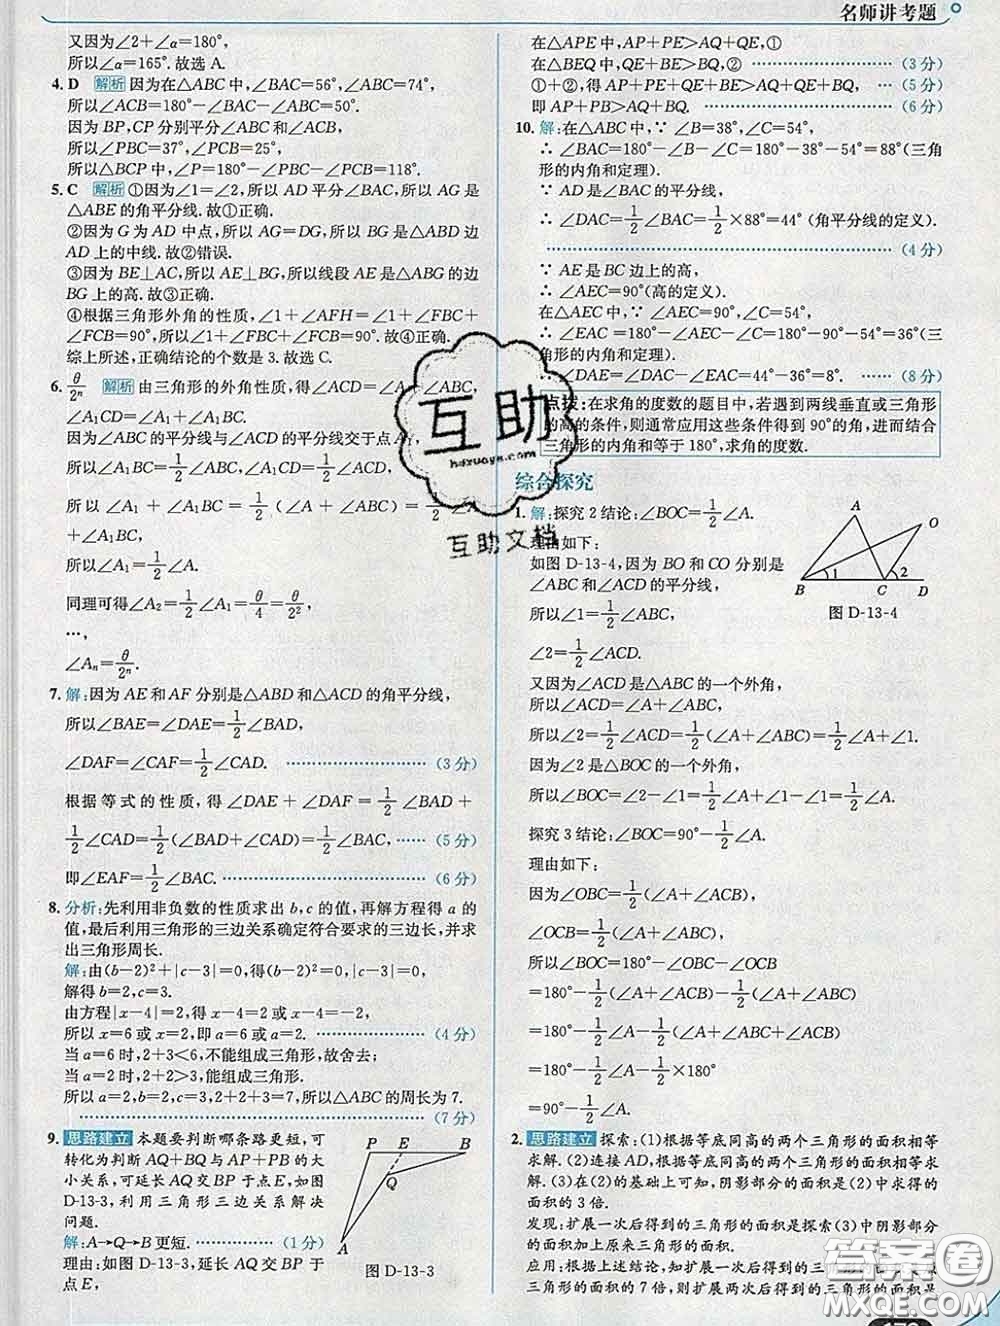 名师讲考题
又因为∠2+∠α=180°,
所以∠α=165°. 故选 A.
4. D 解析 因为在△ABC 中,∠BAC=56°,∠ABC=74°,
所以∠ACB=180°-∠BAC-∠ABC=50°.
因为 BP,CP 分别平分∠ABC 和∠ACB,
所以∠PBC=37°,∠PCB=25°,
所以△BCP 中,∠P=180°-∠PBC-∠PCB=118°.
5. C 解析 ①因为∠1=∠2,所以 AD 平分∠BAC,所以 AG 是
△ABE 的角平分线. 故①正确.
②因为 G 为 AD 中点,所以 AG=DG,所以 BG 是△ABD 边
AD 上的中线. 故②错误.
③因为 BE⊥AC,所以 AE⊥BG,所以线段 AE 是△ABG 的边
BG 上的高. 故③正确.
④根据三角形外角的性质,∠1+∠AFH=∠FBC+
∠FCB=90°,所以∠1+∠FBC+∠FCB=90°. 故④正确.
综上所述,正确结论的个数是 3. 故选 C.
6. θ/2ⁿ 解析 由三角形的外角性质,得∠ACD=∠A+∠ABC,
∠A₁CD=∠A₁+∠A₁BC.
因为∠ABC 的平分线与∠ACD 的平分线交于点 A₁,
所以∠A₁BC=1/2∠ABC,∠A₁CD=1/2∠ACD,
所以∠A₁+∠A₁BC=1/2(∠A+∠ABC)=1/2∠A
+∠A₁BC,
所以∠A₁=1/2∠A.
同理可得∠A₂=1/2∠A₁=θ/4=θ/2²,
…,
∠Aₙ=θ/2ⁿ.
7. 解:因为 AE 和 AF 分别是∠ABD 和∠ACD 的角平分线,
所以∠BAE=∠DAE=1/2∠BAD,
∠DAF=∠CAF=1/2∠CAD. (3 分)
根据等式的性质,得∠DAE+∠DAF=1/2∠BAD+
1/2∠CAD=1/2(∠BAD+∠CAD)=1/2∠BAC, (5 分)
即∠EAF=1/2∠BAC. (6 分)
8. 分析:先利用非负数的性质求出 b,c 的值,再解方程得 a 的
值,最后利用三角形的三边关系确定符合要求的三边长,并求
出三角形周长.
解:由(b-2)²+|c-3|=0,得(b-2)²=0,|c-3|=0,
解得 b=2,c=3.
由方程|x-4|=2,得 x-4=2 或 x-4=-2,
所以 x=6 或 x=2,即 a=6 或 a=2. (4 分)
当 a=6 时,2+3<6,不能组成三角形,故舍去;
当 a=2 时,2+2>3,能组成三角形.
所以 a=2,b=2,c=3,2+2+3=7,所以△ABC 的周长为 7.
(7 分)
9. 思路建立 本题要判断哪条路更短,可
转化为判断 AQ+BQ 与 AP+PB 的
大小关系,可延长 AQ 交 BP 于点 E,如图
D-13-3,利用三角形三边关系解决
问题.
解:A→Q→B 更短. (1 分)
理由:如图 D-13-3,延长 AQ 交 BP 于
点 E,
P E B
Q
A
图 D-13-3
在△APE 中,AP+PE>AQ+QE,①
在△BEQ 中,QE+BE>BQ,② (3 分)
①+②,得 AP+PE+QE+BE>AQ+QE+BQ, (5 分)
即 AP+PB>AQ+BQ. (6 分)
10. 解:在△ABC 中,∵∠B=38°,∠C=54°,
∴∠BAC=180°-∠B-∠C=180°-38°-54°=88°(三角
形的内角和定理).
∵ AD 是∠BAC 的平分线,
∴∠DAC=1/2∠BAC=1/2×88°=44°(角平分线的定义).
(4 分)
∵ AE 是 BC 边上的高,
∴∠AEC=90°(高的定义).
在△AEC 中,
∴∠EAC=180°-∠AEC-∠C=180°-90°-54°=36°(三
角形的内角和定理).
∴∠DAE=∠DAC-∠EAC=44°-36°=8°. (8 分)
点拨:在求角的度数的题目中,若遇到两线垂直或三角形
的高的条件,则通常应用这些条件得到 90°的角,进而结合
三角形的内角和等于 180°,求角的度数.
综合探究
1. 解:探究 2 结论:∠BOC=1/2∠A.
理由如下:
如图 D-13-4,因为 BO 和 CO 分别是
∠ABC 和∠ACD 的平分线,
所以∠1=1/2∠ABC,
∠2=1/2∠ACD.
A O
1 2
B C D
图 D-13-4
又因为∠ACD 是△ABC 的一个外角,
所以∠ACD=∠A+∠ABC,
所以∠2=1/2∠ACD=1/2(∠A+∠ABC)=1/2∠A+∠1.
因为∠2 是△BOC 的一个外角,
所以∠BOC=∠2-∠1=1/2∠A+∠1-∠1=1/2∠A.
探究 3 结论:∠BOC=90°-1/2∠A.
理由如下:
因为∠OBC=1/2(∠A+∠ACB),
∠OCB=1/2(∠A+∠ABC),
所以∠BOC=180°-∠OBC-∠OCB
=180°-1/2(∠A+∠ACB)-1/2(∠A+∠ABC)
=180°-1/2∠A-1/2(∠A+∠ABC+∠ACB)
=180°-1/2∠A-1/2×180°
=90°-1/2∠A.
2. 思路建立 探索:(1)根据等底同高的两个三角形的面积相等
求解. (2)连接 AD,根据等底同高的两个三角形的面积相等
求解. (3)在(2)的基础上可知,阴影部分的面积是(2)中求得
的面积的 3 倍.
发现:扩展一次后得到的三角形的面积是探索(3)中阴影部分
的面积加上原来三角形的面积.
应用:根据上述结论,知扩展一次后得到的三角形是原
三角形的面积的 7 倍,则扩展两次后得到的三角形的面积是
互助
huzuoye.com
互助文档
答案圈
MXQE.COM